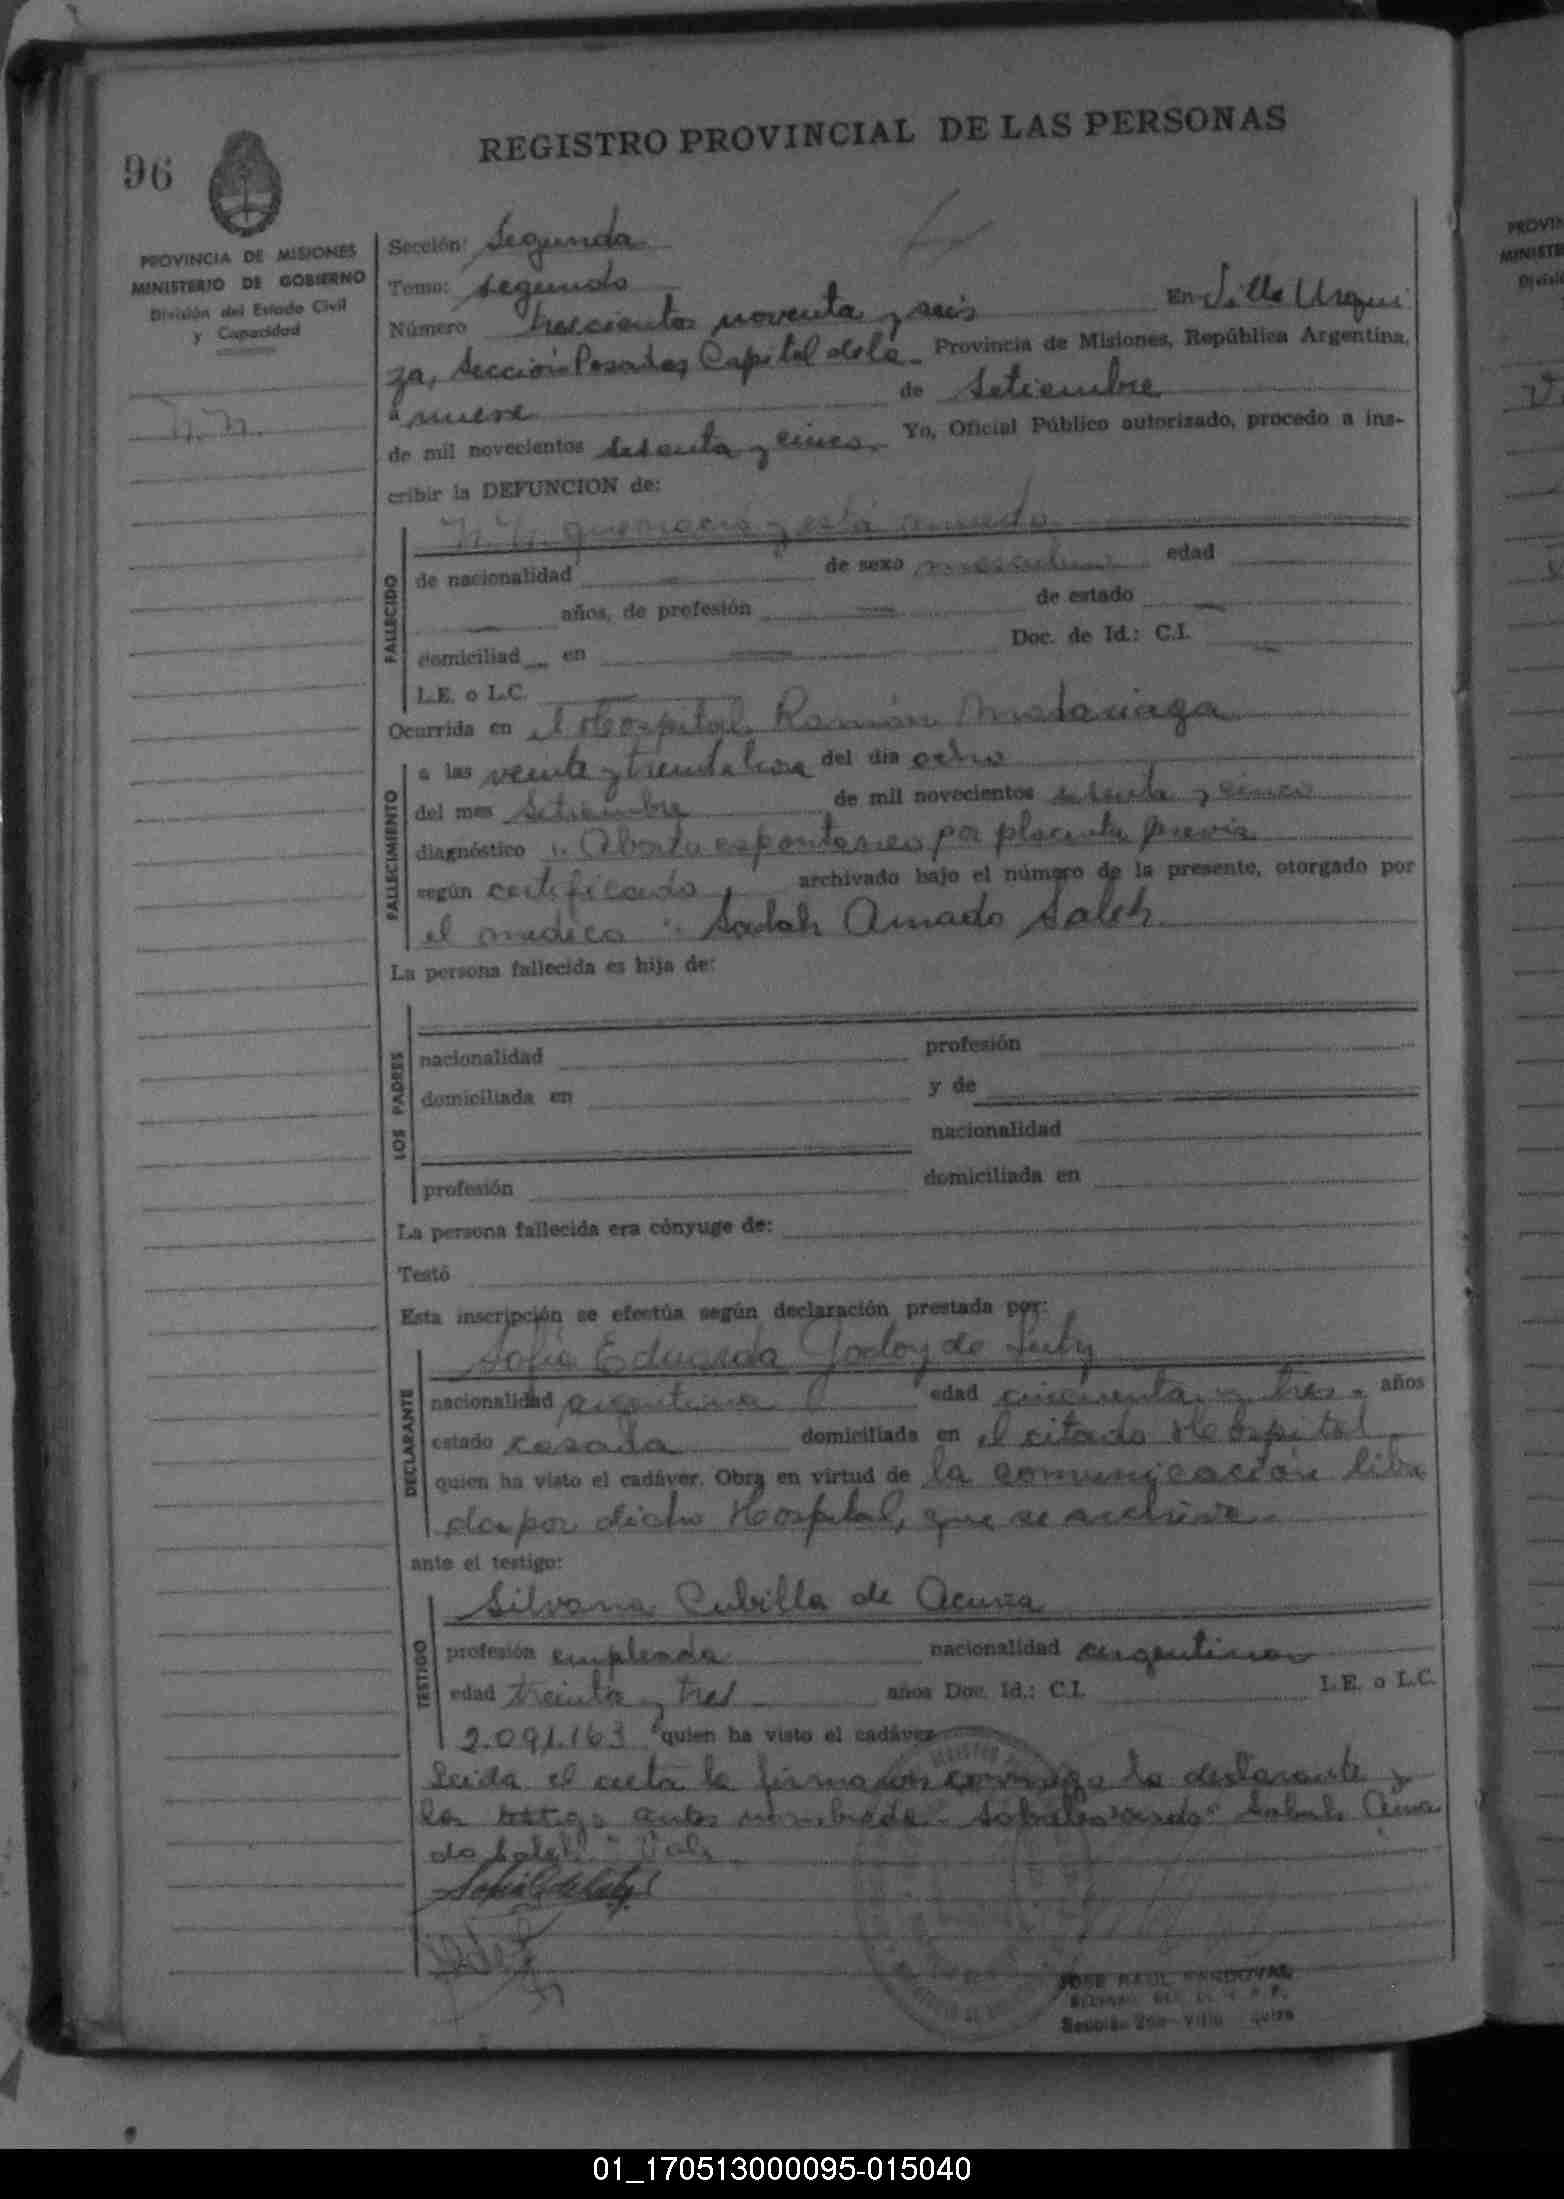 REGISTRO PROVINCIAL DE LAS PERSONAS
96
PROVINCIA DE MISIONES
MINISTERIO DE GOBIERNO
División del Estado Civil
y Capacidad
N.N.
Sección: Segunda
Tomo: segundo
Número trescientos noventa y seis En Villa Urqui
za, Sección Posadas Capital de la Provincia de Misiones, República Argentina,
a nueve de Setiembre
de mil novecientos setenta y cinco. Yo, Oficial Público autorizado, procedo a ins-
cribir la DEFUNCION de:
FALLECIDO
N.N. que nació y está muerto
de nacionalidad de sexo masculino edad
años, de profesión de estado
domiciliad en Doc. de Id.: C.I.
L.E. o L.C.
Ocurrida en el Hospital Ramón Madariaga
FALLECIMIENTO
a las veinte y treinta hora del día ocho
del mes Setiembre de mil novecientos setenta y cinco
diagnóstico "Aborto espontaneo por placenta previa
según certificado archivado bajo el número de la presente, otorgado por
el medico : Salah Amado Saleh
La persona fallecida es hija de:
LOS PADRES
nacionalidad profesión
domiciliada en y de
nacionalidad
profesión domiciliada en
La persona fallecida era cónyuge de:
Testó
Esta inscripción se efectúa según declaración prestada por:
DECLARANTE
Sofia Eduarda Godoy de
nacionalidad argentina edad cincuenta y tres. años
estado casada domiciliada en el citado Hospital
quien ha visto el cadáver. Obra en virtud de la comunicación libra
da por dicho Hospital, que se archiva.
ante el testigo:
TESTIGO
Silvana Cubilla de Acuña
profesión empleada nacionalidad argentina
edad treinta y tres años Doc. Id.: C.I. L.E. o L.C.
2.091.163 quien ha visto el cadáver
Leida el acta la firman conmigo la declarante y
la testigo antes nombrada. Sobreborrado "Salah Ama
do Saleh" Vale
JOSE RAUL SANDOVAL
Sección 2da - Villa
01_170513000095-015040